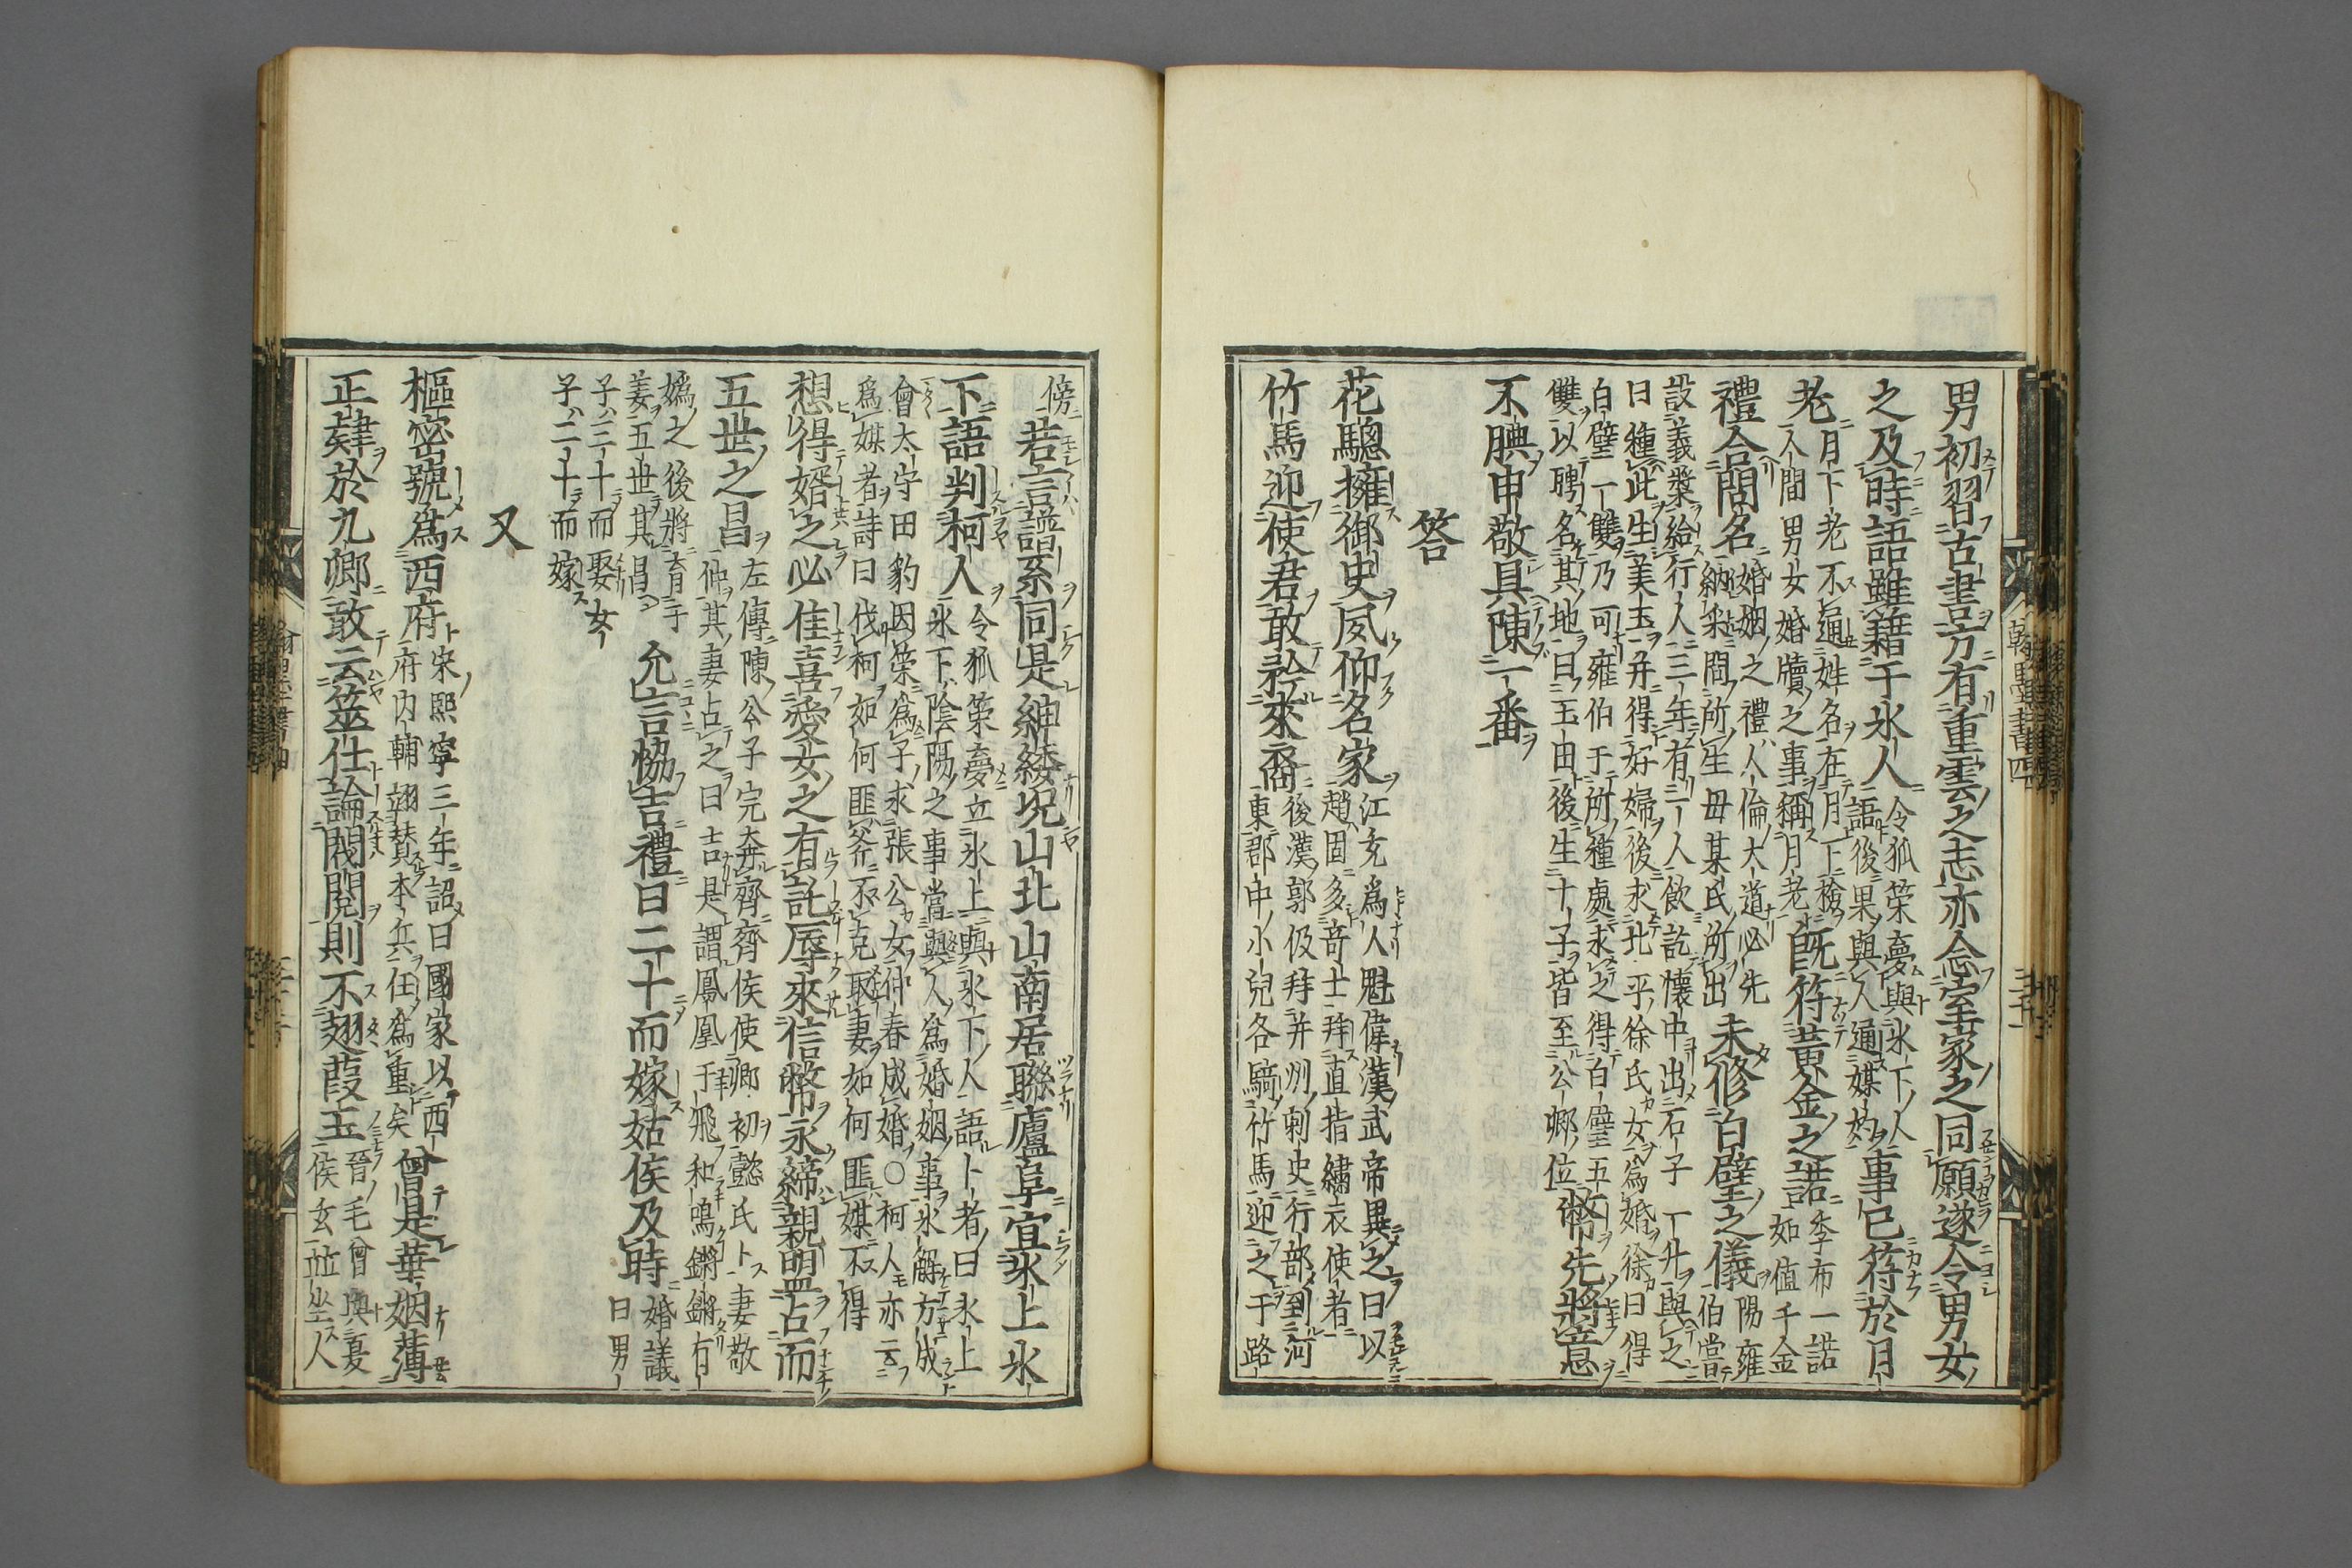 男初習古書方有重雲之志亦念室家之同願遂令男女
之及時語雖藉于氷人
令狐策夢與氷下人
語後果與人通媒妁
事已符於月
老
月下老不逼姓名在月上檢
人間男女婚牘之事稱月老
既符黄金之諾
季布一諾
如值千金
禮合問名
婚姻之禮人倫大道必先
納采問所生母某氏所出
未修白璧之儀
陽雍
伯嘗
設義漿給行人三年有一人飲訖懷中出石子一升與之
曰種此生美玉并得好婦後求北平徐氏女爲婚徐曰得
白璧一雙乃可雍伯于所種處求之得白璧五
雙以聘名其地曰玉田後生十子皆至公卿位
幣先將意
不腆申敬具陳一番
答
花驄擁御史夙仰名家
江充爲人魁偉漢武帝異之曰以
趙固多奇士拜直指繡衣使者
竹馬迎使君敢矜來裔
後漢郭伋拜并州刺史行部到河
東郡中小兒各騎竹馬迎之于路
傍
若言譜系同是紳緌况山北山南居聯廬阜宜氷上氷
下語判柯人
令狐策夢立氷上與氷下人語卜者曰氷上
氷下陰陽之事當與人爲婚姻事氷解方成
會太守田豹因策爲子求張公女仲春成婚○柯人亦云
爲媒者詩曰伐柯如何匪斧不克取妻如何匪媒不得
想得婿之必佳喜愛女之有託辱來信幣永締親盟占而
五世之昌
左傳陳公子完奔齊齊侯使卿初懿氏卜妻敬
仲其妻占之曰吉是謂鳳凰于飛和鳴鏘鏘有
嬀之後將育于
姜五世其昌
允言恊吉禮曰二十而嫁姑俟及時
婚議
曰男
子三十而娶女
子二十而嫁
又
樞密號爲西府
宋熙寧三年詔曰國家以西
府内輔翊賛本兵任爲重矣
曾是華姻薄
正肄於九卿敢云筮仕論閥閲則不翅葭玉
晉毛曾與夏
侯玄並坐人
翰墨書四
三十一